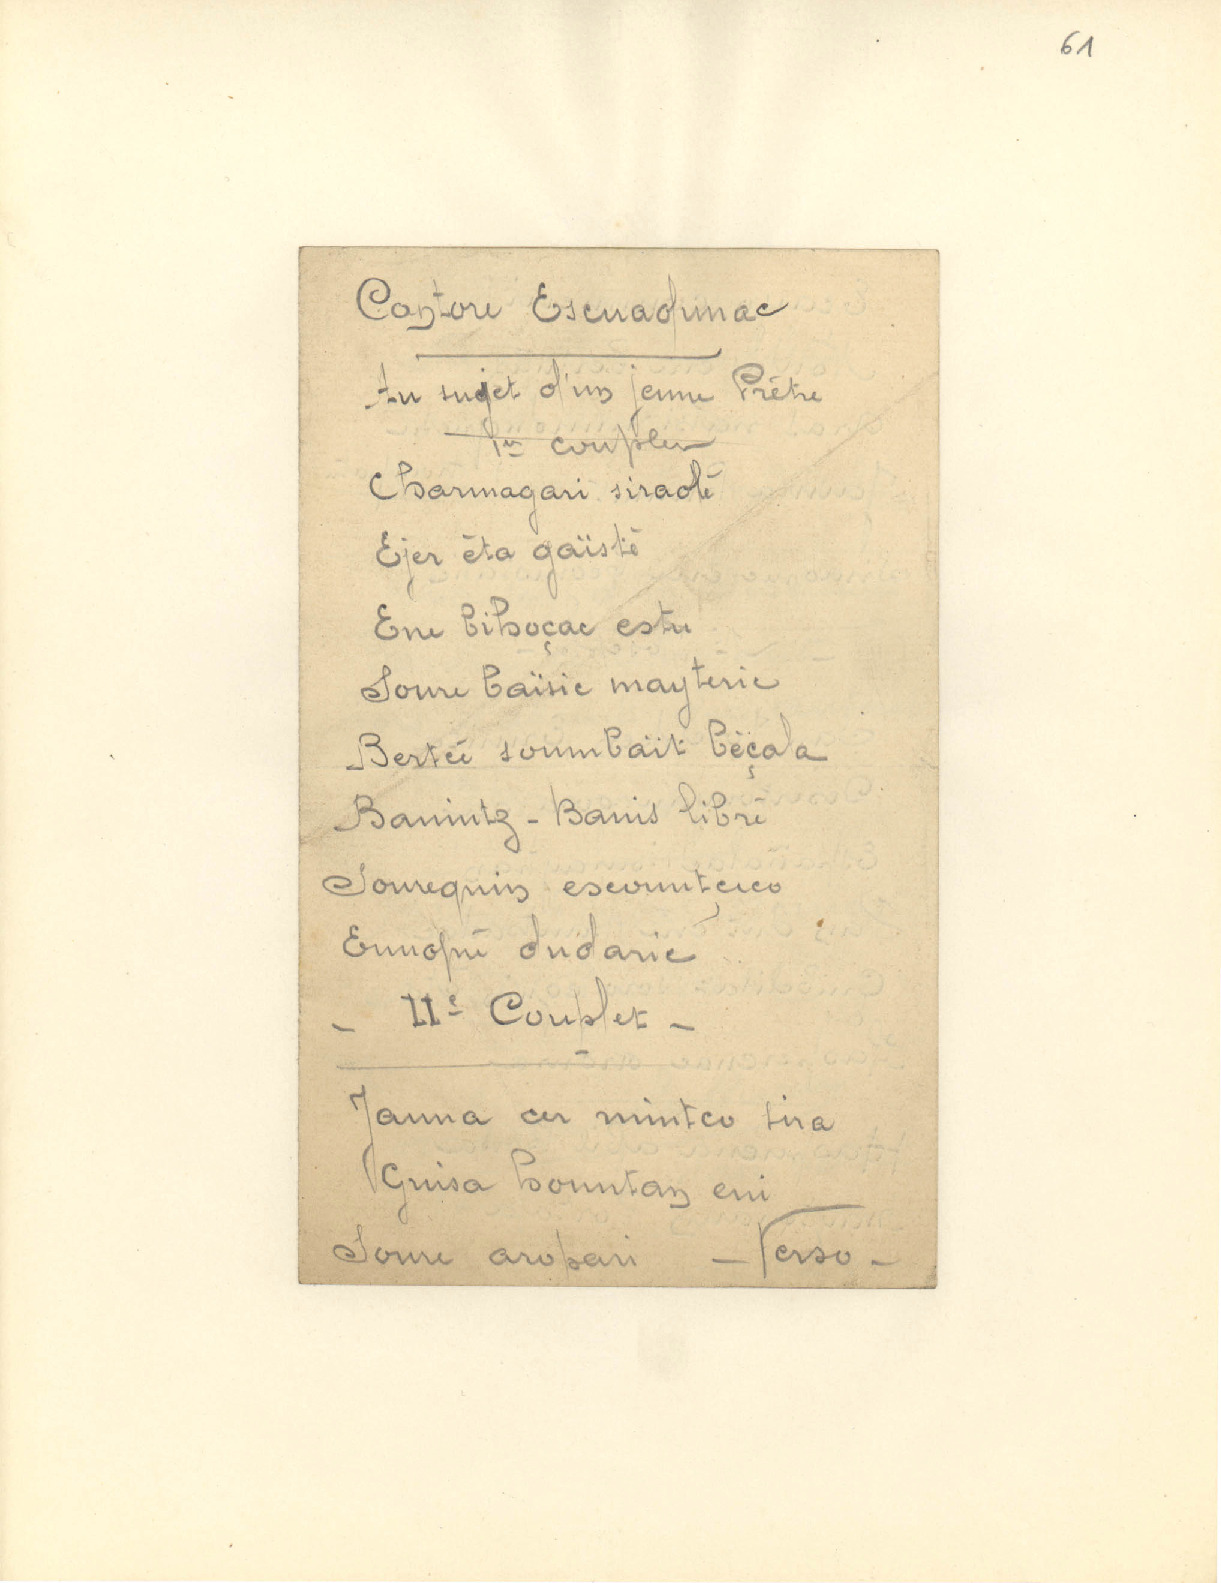 61
Cantore Escuadunac
Au sujet d'un jeune Prêtre
1er couplet
Charmagari siradé
Ejer éta gaïsté
Ene bihoçac estu
Soure baïsic mayteric
Bertcé soumbaït béçala
Banintz - Banis libré
Sourequin escountceco
Ennopé dudaric
- IIe Couplet -
Jauna cer mintco tira
Guisa hountan eni
Soure aropari - Verso -